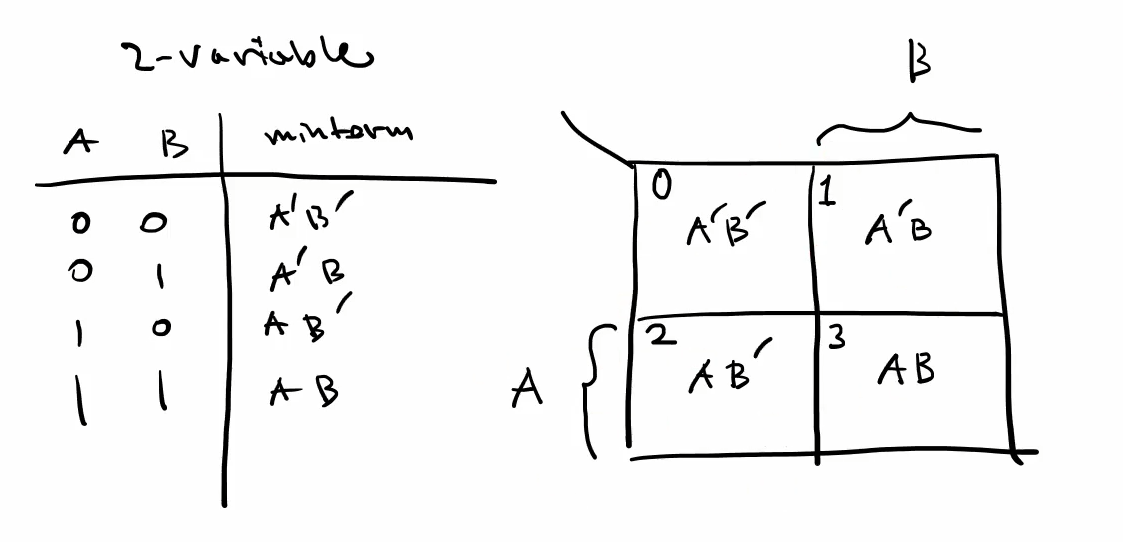 2-variable
A B minterm
0 0 A'B'
0 1 A'B
1 0 AB'
1 1 AB
B
0 A'B' 1 A'B
A
2 AB' 3 AB